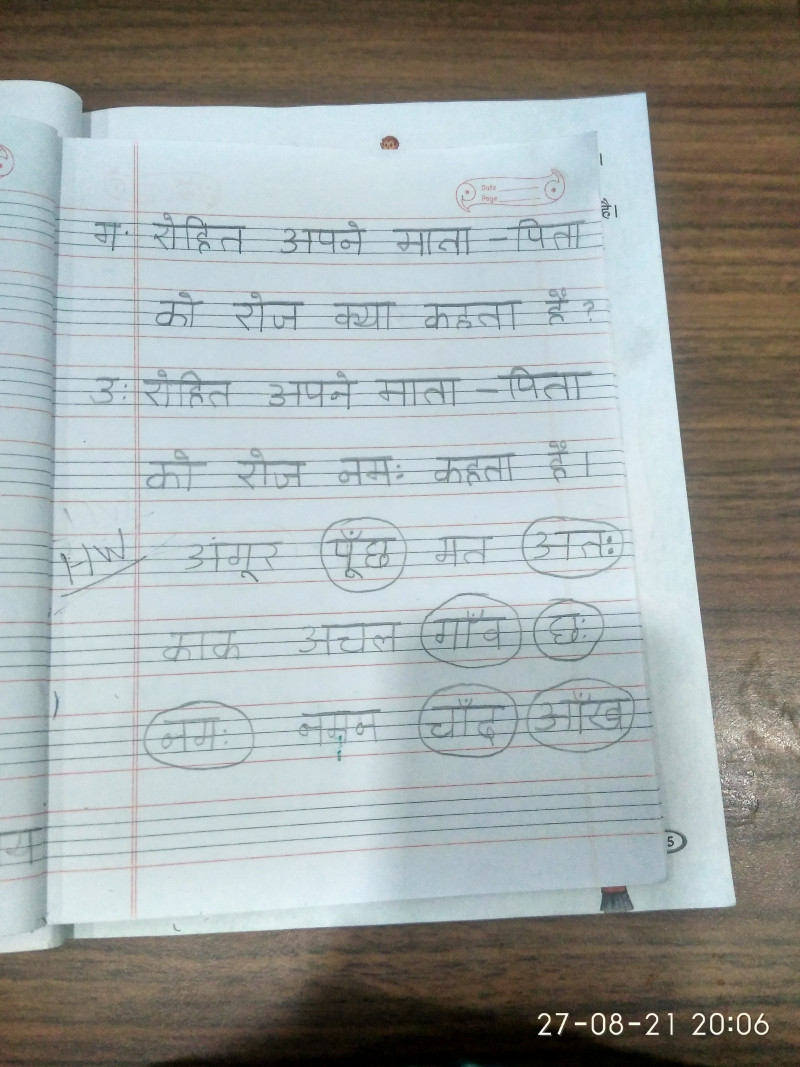 Date
Page
ग. रोहित अपने माता - पिता
को रोज क्या कहता हैं ?
उ: रोहित अपने माता - पिता
को रोज नमः कहता हैं।
HW अंगूर पूँछ मत अतः
काक अचल गाँव छः
नमः नमन चाँद आँख
5
27-08-21 20:06